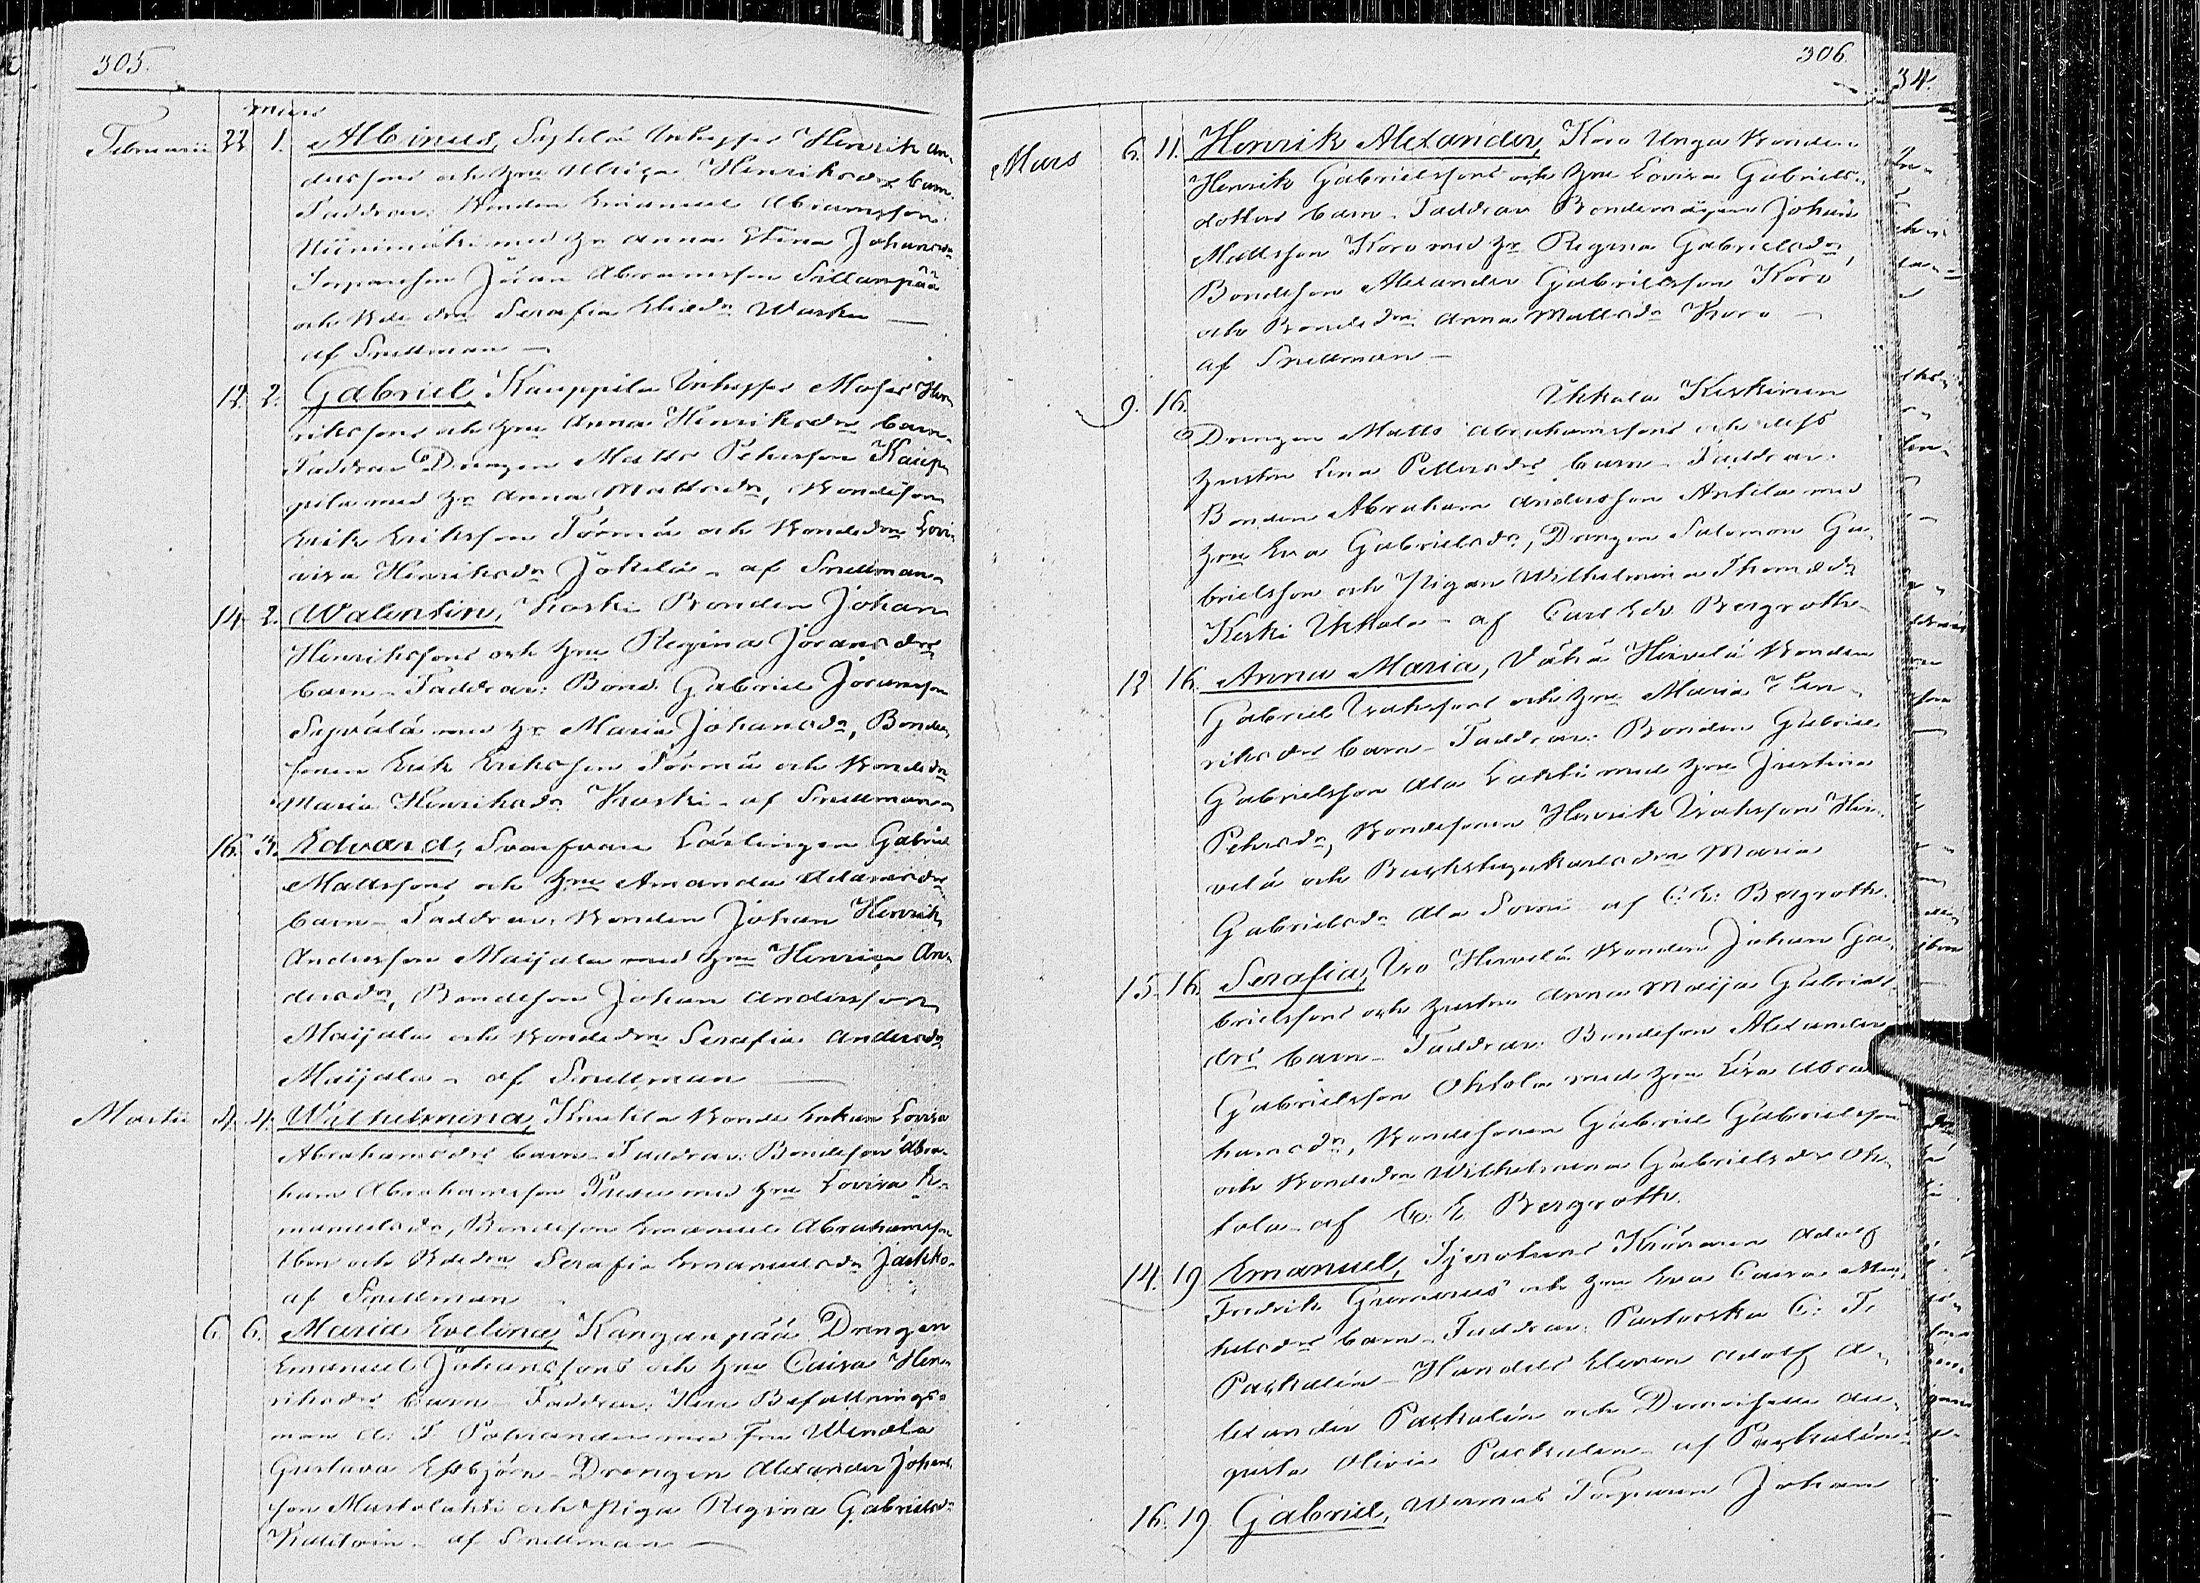 305.
mars
Februarii 22 1. Albinus, Inhyses Henrik An-
derssons och hru Ulrica Henriksdrs barn.
Faddrar: Bonden Emanuel Abramsson
Niinimäki med hr Anna Stina Johansdr
Jöran Abramsson Sillanpää
och Serafia Wasku —
af Snellman —
12. 2. Gabriel, Kauppila Inhyses Moses Hen-
rikssons och hru Anna Henriksdrs barn.
Faddrar Drengen Matts Pehrsson Kaup-
pila med hr Anna Mattsdr, Bondeson
Erik Eriksson Törmä och Bondedrn Lovi-
visa Henriksdr Jokela – af Snellman.
14. 2. Walentin, Koski Bonden Johan
Henrikssons och hru Regina Jöransdrs
barn – Faddrar: Bond. Gabriel Jöransson
Sayrälä med hr Maria Johansdr, Bonde-
sonen Erik Eriksson Törmä och Bondedrn
Maria Henriksdr Koski – af Snellman
16. 3. Edvard, Lärlingen Gabriel
Mattssons och hru Amanda Adamsdrs
barn – Faddrar: Bonden Johan Henrik
Andersson Maijala med hru Henrica An-
dersdr, Bondeson Johan Andersson
Maijala och Bondedrn Serafia Andersdr
Maijala – af Snellman —
Martii 4. 4. Wilhelmina, Knutila Bonde Enkan Lovisa
Abrahamsdrs barn – Faddrar: Bondeson Abra-
ham Abrahamsson med hru Lovisa E-
manuelsdr, Bondeson Emanuel Abrahamsson
och Serafia Emanuelsdr Jaakko.
af Snellman
6. 6. Maria Evelina, Kanganpää Drengen
Emanuel Johanssons och hru Caisa Hen-
riksdrs barn – Faddrar: Herr Befallnings-
man A. F. Polviander med Fru Wendla
Gustava Essbjörn – Drengen Alexander Johans-
son Mustalahti och Piga Regina Gabrielsdr
af Snellman —
306.
Mars 6. 11. Henrik Alexander, Koro Unga Bonden
Henrik Gabrielssons och hru Lovisa Gabriels-
dotters barn – Faddrar Bondemågen Johan
Mattsson Koro med hr Regina Gabrielsdr,
Bondeson Alexander Gabrielsson Koro
och Bondedrn Anna Mattsdr Koro —
af Snellman —
9. 16. Ikkala Keskinen
Drengen Matts Abrahamssons och dess
hustru Lena Pettersdrs barn – Faddrar:
Bonden Abraham Andersson Anttila med
hru Eva Gabrielsdr, Drengen Salomon Ga-
brielsson och Pigan Wilhelmina Thomædr
Keski Ikkala – af Carl Edv. Bergroth
12 16. Anna Maria, Vähä Hirvelä Bonden
Gabriel Isakssons och hru Maria Hen-
riksdrs barn – Faddrar: Bonden Gabriel
Gabrielsson Ala Lahti med hru Justina
Pehrsdr, Bondesonen Henrik Isaksson Hir-
velä och Backstugukarlsdrn Maria
Gabrielsdr Ala Sorvi af C. E. Bergroth.
15. 16. Serafia, Iso Hirvelä Bonden Johan Ga-
brielssons och hustru Anna Maija Gabriels-
drs barn – Faddrar: Bondeson Alexander
Gabrielsson Ohtola med hru Lisa Abra-
hamsdr, Bondesonen Gabriel Gabrielsson
och Bondedrn Wilhelmina Gabrielsdr Oh-
tola – af C. E. Bergroth.
14. 19 Emanuel, Adolf
Fredrik och hru Eva Caisa Mi-
kelsdrs barn – Faddrar: Pastorska C. F.
Paqvalén – Handels Eleven Adolf A-
lexander Paqvalén och Demoiselle Au-
gusta Olivia Paqvalén – af Paqvalén
16. 19 Gabriel, Torparen Johan
34.